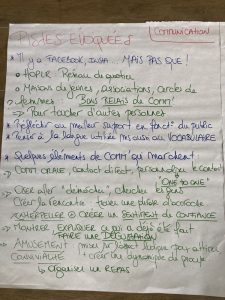 PISTES EVOQUÉES
COMMUNICATION
* Il y a FACEBOOK, INSTA... MAIS PAS QUE !
→ HOPLR Réseau de quartier
→ Maisons de jeunes, associations, cercles de
femmes : BONS RELAIS DE COMM'
→ Pour toucher d'autres personnes
* Réfléchir au meilleur support en fonct° du public
* Penser à la langue utilisée mais aussi au VOCABULAIRE
* Quelques éléments de COMM qui marchent
→ COMM ORALE, contact direct, personnaliser le contact
"ONE TO ONE"
→ Oser aller "démarcher", chercher les gens
→ Créer la rencontre, trouver une phrase d'accroche
→ INTERPELLER & CRÉER UN SENTIMENT DE CONFIANCE
→ MONTRER, EXPLIQUER ce qui a déjà été fait
FAIRE UNE DÉGUSTATION
→ AMUSEMENT miser sur l'aspect ludique pour attirer
CONVIVIALITÉ + créer une dynamique de groupe
↳ ORGANISER UN REPAS